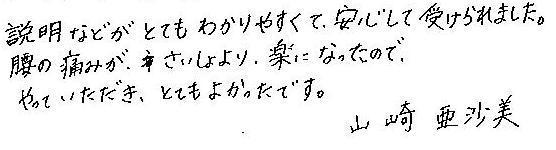 説明などがとてもわかりやすくて、安心して受けられました。
腰の痛みが、さいしょより、楽になったので、
やっていただき、とてもよかったです。
山崎 亜沙美